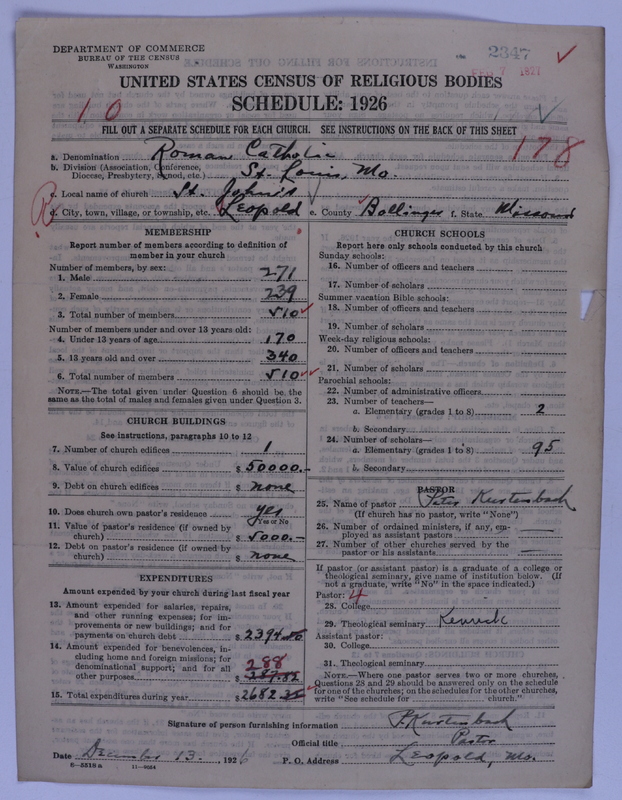 DEPARTMENT OF COMMERCE
BUREAU OF THE CENSUS
WASHINGTON
2347
UNITED STATES CENSUS OF RELIGIOUS BODIES
SCHEDULE: 1926
10
FILL OUT A SEPARATE SCHEDULE FOR EACH CHURCH. SEE INSTRUCTIONS ON THE BACK OF THIS SHEET
178
a. Denomination Roman Catholic
b. Division (Association, Conference, Diocese, Presbytery, Synod, etc.) St. Louis, Mo.
c. Local name of church St. John's
d. City, town, village, or township, etc. Leopold e. County Bollinger f. State Missouri
MEMBERSHIP
Report number of members according to definition of
member in your church
Number of members, by sex:
1. Male 271
2. Female 239
3. Total number of members 510
Number of members under and over 13 years old:
4. Under 13 years of age 170
5. 13 years old and over 340
6. Total number of members 510
NOTE.—The total given under Question 6 should be the
same as the total of males and females given under Question 3.
CHURCH BUILDINGS
See instructions, paragraphs 10 to 12
7. Number of church edifices 1
8. Value of church edifices $ 50000.-
9. Debt on church edifices $ none
10. Does church own pastor's residence? yes
Yes or No
11. Value of pastor's residence (if owned by
church) $ 5000.-
12. Debt on pastor's residence (if owned by
church) $ none
EXPENDITURES
Amount expended by your church during last fiscal year
13. Amount expended for salaries, repairs,
and other running expenses; for im-
provements or new buildings; and for
payments on church debt $ 2394
14. Amount expended for benevolences, in-
cluding home and foreign missions; for
denominational support; and for all 288
other purposes $ 287.82
15. Total expenditures during year $ 2682
CHURCH SCHOOLS
Report here only schools conducted by this church
Sunday schools:
16. Number of officers and teachers
17. Number of scholars
Summer vacation Bible schools:
18. Number of officers and teachers
19. Number of scholars
Week-day religious schools:
20. Number of officers and teachers
21. Number of scholars
Parochial schools:
22. Number of administrative officers
23. Number of teachers—
a. Elementary (grades 1 to 8) 2
b. Secondary
24. Number of scholars—
a. Elementary (grades 1 to 8) 95
b. Secondary
PASTOR
25. Name of pastor Peter Kerstenbach
(If church has no pastor, write "None")
26. Number of ordained ministers, if any, em-
ployed as assistant pastors
27. Number of other churches served by the
pastor or his assistants
If pastor (or assistant pastor) is a graduate of a college or
theological seminary, give name of institution below. (If
not a graduate, write "No" in the space indicated.)
Pastor: 4
28. College
29. Theological seminary Kenrick
Assistant pastor:
30. College
31. Theological seminary
NOTE.—Where one pastor serves two or more churches,
Questions 28 and 29 should be answered only on the schedule
for one of the churches; on the schedules for the other churches,
write "See schedule for church."
Signature of person furnishing information P. Kerstenbach
Official title Pastor
Date December 13. 1926 P. O. Address Leopold, Mo.
E—5518 a 11—9064